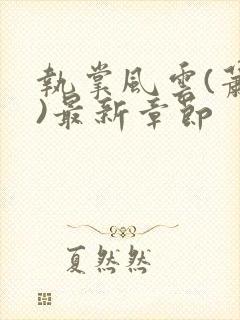 執掌風雲(蕭
)最新章節
夏然然